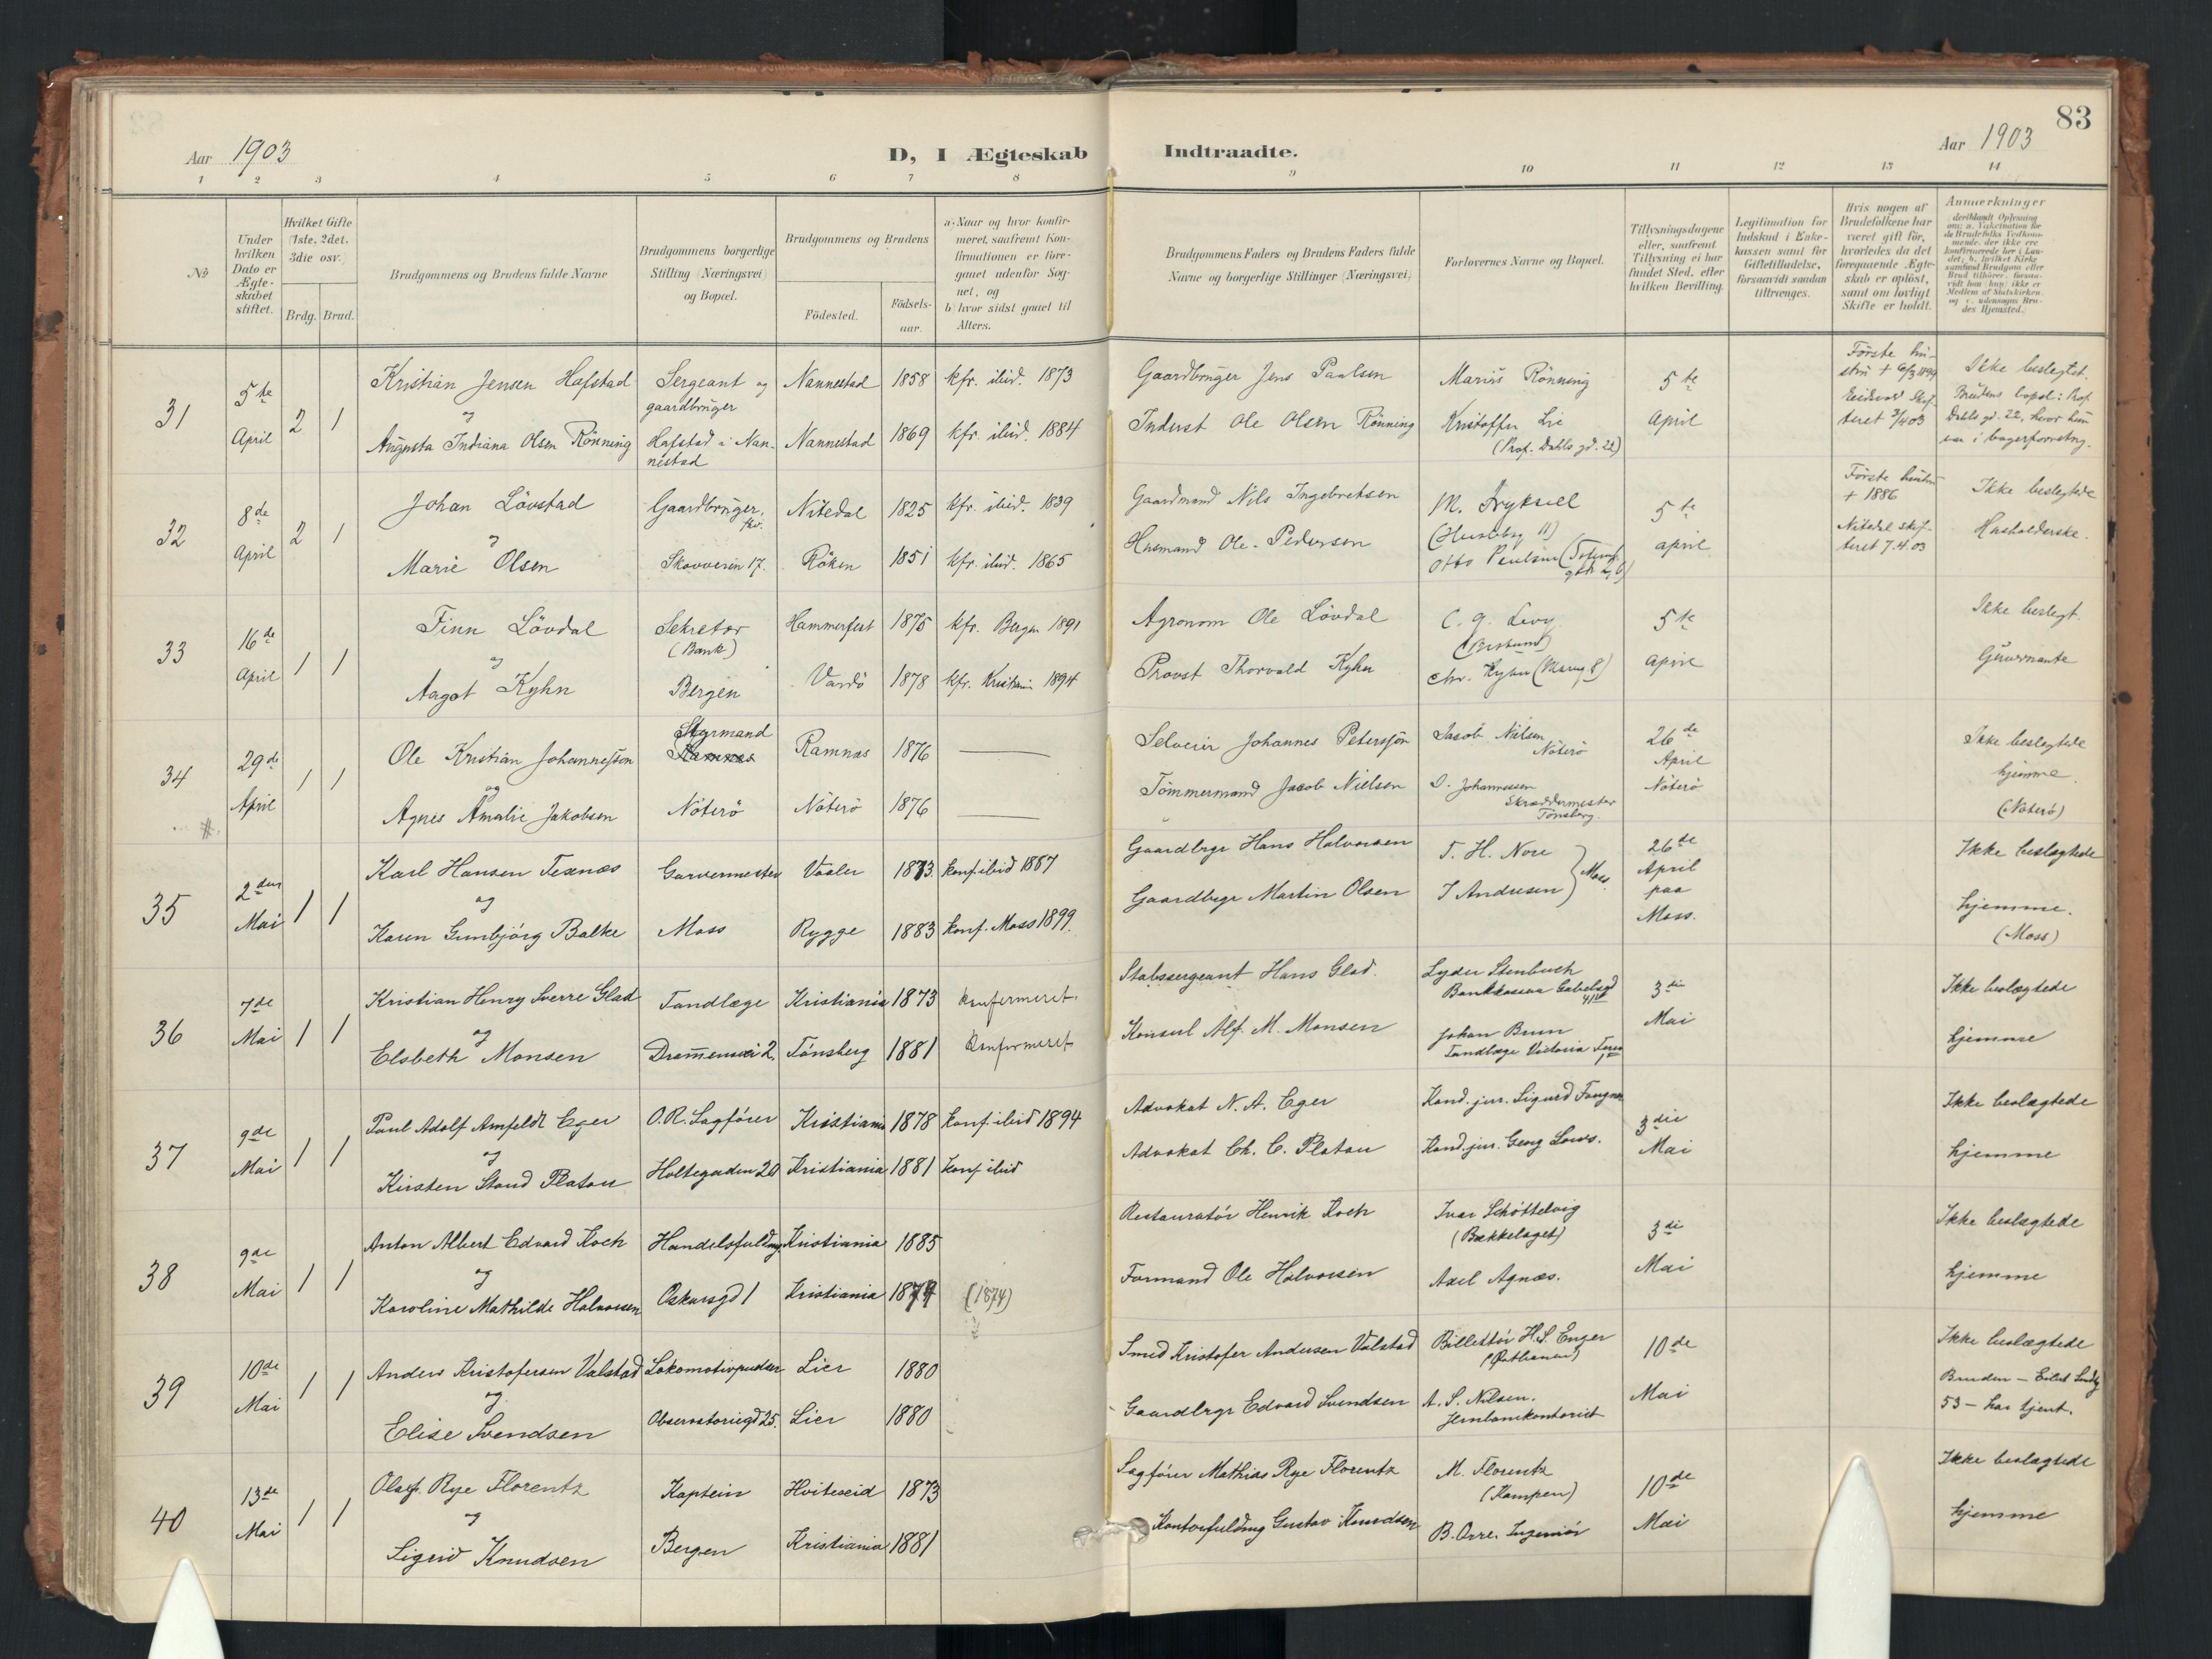 83
Aar 1903
D, I Ægteskab Indtraadte.
Aar 1903
1 2 3 4 5 6 7 8 9 10 11 12 13 14
№
Under hvilken Dato er Ægteskabet stiftet.
Hvilket Gifte (1ste, 2det, 3die osv.)
Brdg. Brud.
Brudgommens og Brudens fulde Navne
Brudgommens borgerlige Stilling (Næringsvei) og Bopæl.
Brudgommens og Brudens
Födested.
Födsels-aar.
a) Naar og hvor konfir-
meret, saafremt Kon-
firmationen er fore-
gaaet udenfor Sog-
net, og
b) hvor sidst gaaet til
Alters.
Brudgommens Faders og Brudens Faders fulde
Navne og borgerlige Stillinger (Næringsvei)
Forlovernes Navne og Bopæl.
Tillysningsdagene
eller, saafremt
Tillysning ei har
fundet Sted, efter
hvilken Bevilling.
Legitimation for
Indskud i Enke-
kassen samt for
Giftetilladelse,
forsaavidt saadan
tiltrænges.
Hvis nogen af
Brudefolkene har
været gift för,
hvorledes da det
foregaaende Ægte-
skab er oplöst,
samt om lovligt
Skifte er holdt.
Anmerkninger
(deriblandt Oplysning
om: a. Vakcination for
de Brudefolks Vedkom-
mende, der ikke ere
konfirmerede her i Lan-
det; b. hvilket Kirke
samfund Brudgom eller
Brud tilhörer, forsaa-
vidt han (hun) ikke er
Medlem af Statskirken,
og c. udensogns Bru-
des Hjemsted.
31
5te April
2 1
Kristian Jensen Hafstad
og
Augusta Indiana Olsen Rönning
Sergeant og
gaardbruger
Hafstad i Nan-
nestad
Nannestad 1858 kfr. ibid. 1873
Nannestad 1869 kfr. ibid. 1884
Gaardbruger Jens Paulsen
Inderst Ole Olsen Rönning
Marius Rönning
Kristoffer Lie
(Prof. Dahls gd. 22)
5te April
Förste hu-
stru + 6/3 1899
Eidsvold Skif-
teret 3/4 03
Ikke beslegtet.
Brudens bopæl: Prof.
Dahls gd. 22, hvor hun
32
8de April
2 1
Johan Lövstad
og
Marie Olsen
Gaardbruger,
Skovveien 17.
Nitedal 1825 kfr. ibid. 1839
Röken 1851 kfr. ibid. 1865
Gaardmand Nils Ingebretsen
Husmand Ole Pedersen
Otto Paulsen
5te april
Förste hustru
+ 1886
Nitedal skif-
teret 7.4.03
Ikke beslegtede
Husholderske.
33
16de April
1 1
Finn Lövdal
og
Aagot Kyhn
Sekretær
(Bank)
Bergen
Hammerfest 1875 kfr. Bergen 1891
Vardö 1878 kfr. Kristiania 1894
Agronom Ole Lövdal
Provst Thorvald Kyhn
C. g. Levy
Chr. Kyhn
5te april
Ikke beslegt.
Guvernante
34
29de April
1 1
Ole Kristian Johannesson
og
Agnes Amalie Jakobsen
Styrmand
Ramnæs
Nöterö
Ramnæs 1876
Nöterö 1876
Selveier Johannes Peterssön
Tömmermand Jacob Nielsen
Jacob Nielsen
Nöterö
O. Johannessen
Skræddermester
Tönsberg.
26de
April
Nöterö
Ikke beslegtede
hjemme.
(Nöterö)
35
2den Mai
1 1
Karl Hansen Texnæs
og
Karen Gunbjörg Balke
Garvermester
Moss
Vaaler 1873 konf. ibid 1887
Rygge 1883 konf. Moss 1899.
Gaardbrgr Hans Halvorsen
Gaardbrgr Martin Olsen
T. H. Nore
J Andersen
Moss
26de
April
paa
Moss.
Ikke beslægtede
hjemme.
(Moss)
36
7de Mai
1 1
Kristian Henry Sverre Glad
og
Elsbeth Monsen
Tandlæge
Drammensvei 2.
Kristiania 1873 konfirmeret.
Tönsberg 1881 konfirmeret
Stabssergeant Hans Glad.
Konsul Alf. M. Monsen
Lyder Stenbuch
Johan Brun
Tandlæge Victoria Teras
3die
Mai
Ikke beslægtede
hjemme
37
9de Mai
1 1
Paul Adolf Amfeldt Eger
og
Kirsten Stoud Platou
O.R. Sagförer
Holtegaden 20
Kristiania 1878 konf. ibid 1894
Kristiania 1881 konf ibid
Advokat N. A. Eger
Advokat Ch. C. Platou
Kand. jur. Sigurd Fougner
Kand. jur. Georg Lous.
3die
Mai
Ikke beslægtede
hjemme
38
9de Mai
1 1
Anton Albert Edvard Koch
og
Karoline Mathilde Halvorsen
Handelsfuldmg
Oskarsgd 1
Kristiania 1885
Kristiania 1874 (1874)
Restauratör Henrik Koch
Formand Ole Halvorsen
Ivar Schöttelvig
(Bækkelaget)
Axel Agnæs.
3die
Mai
Ikke beslægtede
hjemme
39
10de Mai
1 1
Anders Kristofersen Valstad
og
Elise Svendsen
Lokomotivpudser
Observatoriegd 25.
Lier 1880
Lier 1880
Smed Kristofer Andersen Valstad
Gaardbrgr Edvard Svendsen
Billettör H. S. Enger
A. S. Nilsen.
Jernbanekontoriet
10de
Mai
Ikke beslægtede
Bruden — Eilert Sundtg
53 — har tjent.
40
13de Mai
1 1
Olaf Rye Florentz
og
Sigrid Knudsen
Kaptein
Bergen
Hviteseid 1873
Kristiania 1881
Sagförer Mathias Rye Florentz
Kontorfuldmg Gustav Knudsen
M. Florentz
(Kampen)
B. Orre. Ingeniör
10de
Mai
Ikke beslægtede
hjemme